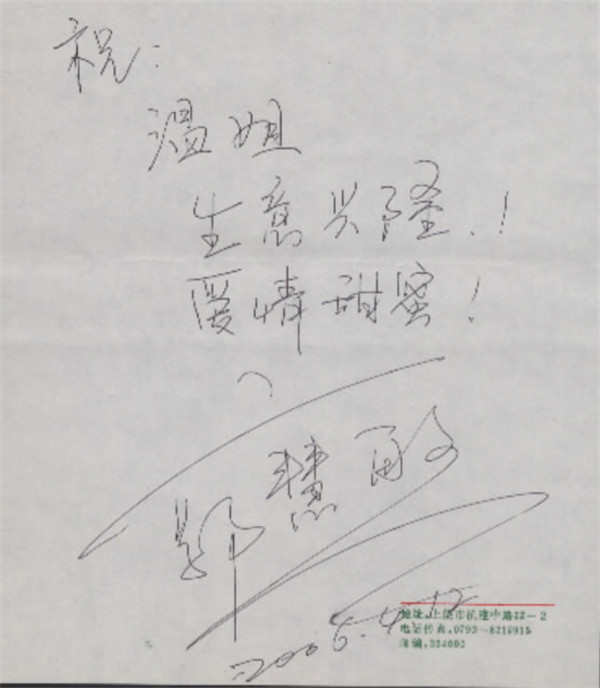 祝：
温姐
生意兴隆！
爱情甜蜜！
郭慧敏
2006.4.12
地址：上饶市抗建中路22－2
电话传真：0793－8219915
邮编：334000